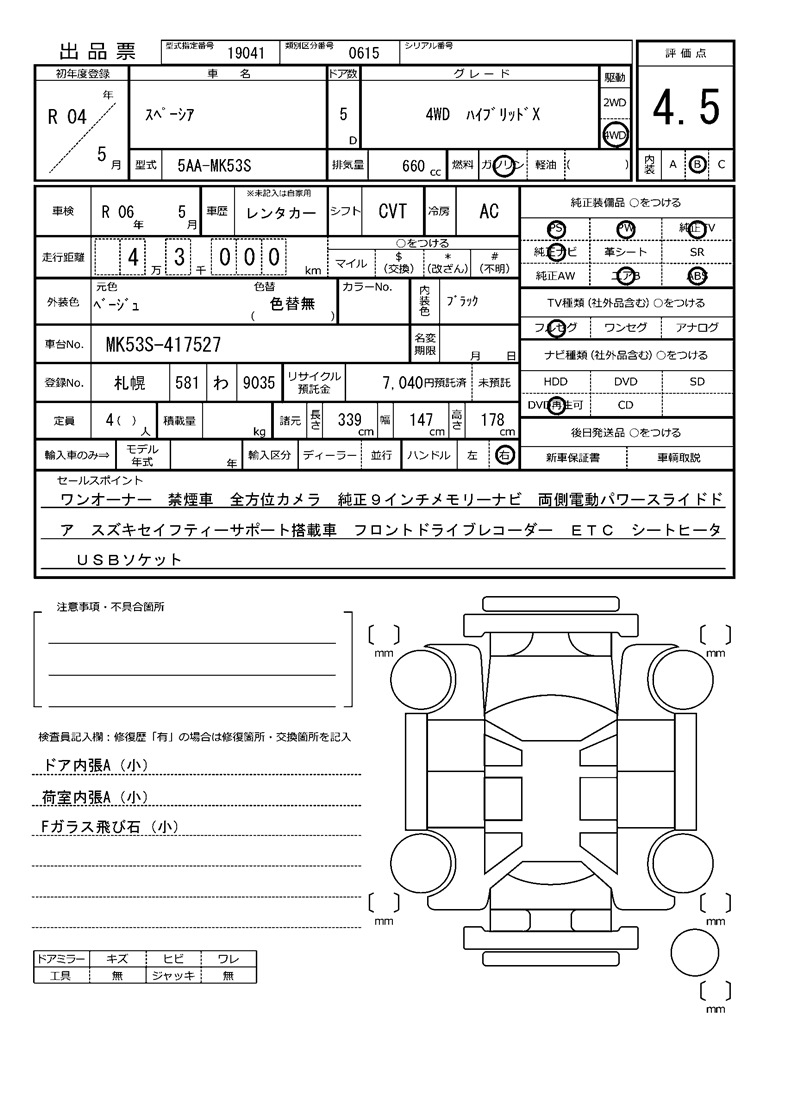 出品票
型式指定番号 19041 類別区分番号 0615 シリアル番号
評価点
4.5
内装 A B C
初年度登録 車名 ドア数 グレード 駆動
R 04 年 5 月 スペーシア 5 D 4WD ハイブリッドX 2WD 4WD
型式 5AA-MK53S 排気量 660 cc 燃料 ガソリン 軽油 ( )
車検 R 06 年 5 月 車歴 ※未記入は自家用 レンタカー シフト CVT 冷房 AC
走行距離 4 万 3 千 0 0 0 km ○をつける
マイル $ (交換) * (改ざん) # (不明)
外装色 元色 ベージュ 色替 色替無 ( ) カラーNo. 内装色 ブラック
車台No. MK53S-417527 名変期限 月 日
登録No. 札幌 581 わ 9035 リサイクル預託金 7,040円預託済 未預託
定員 4( ) 人 積載量 kg 諸元 長さ 339 cm 幅 147 cm 高さ 178 cm
輸入車のみ⇒ モデル年式 年 輸入区分 ディーラー 並行 ハンドル 左 右
純正装備品 ○をつける
PS PW 純正TV
純正ナビ 革シート SR
純正AW エアB ABS
TV種類(社外品含む) ○をつける
フルセグ ワンセグ アナログ
ナビ種類(社外品含む) ○をつける
HDD DVD SD
DVD再生可 CD
後日発送品 ○をつける
新車保証書 車輌取説
セールスポイント
ワンオーナー 禁煙車 全方位カメラ 純正9インチメモリーナビ 両側電動パワースライドド
ア スズキセイフティーサポート搭載車 フロントドライブレコーダー ETC シートヒータ
USBソケット
注意事項・不具合箇所
検査員記入欄:修復歴「有」の場合は修復箇所・交換箇所を記入
ドア内張A(小)
荷室内張A(小)
Fガラス飛び石(小)
ドアミラー キズ ヒビ ワレ
工具 無 ジャッキ 無
mm
mm
mm
mm
mm